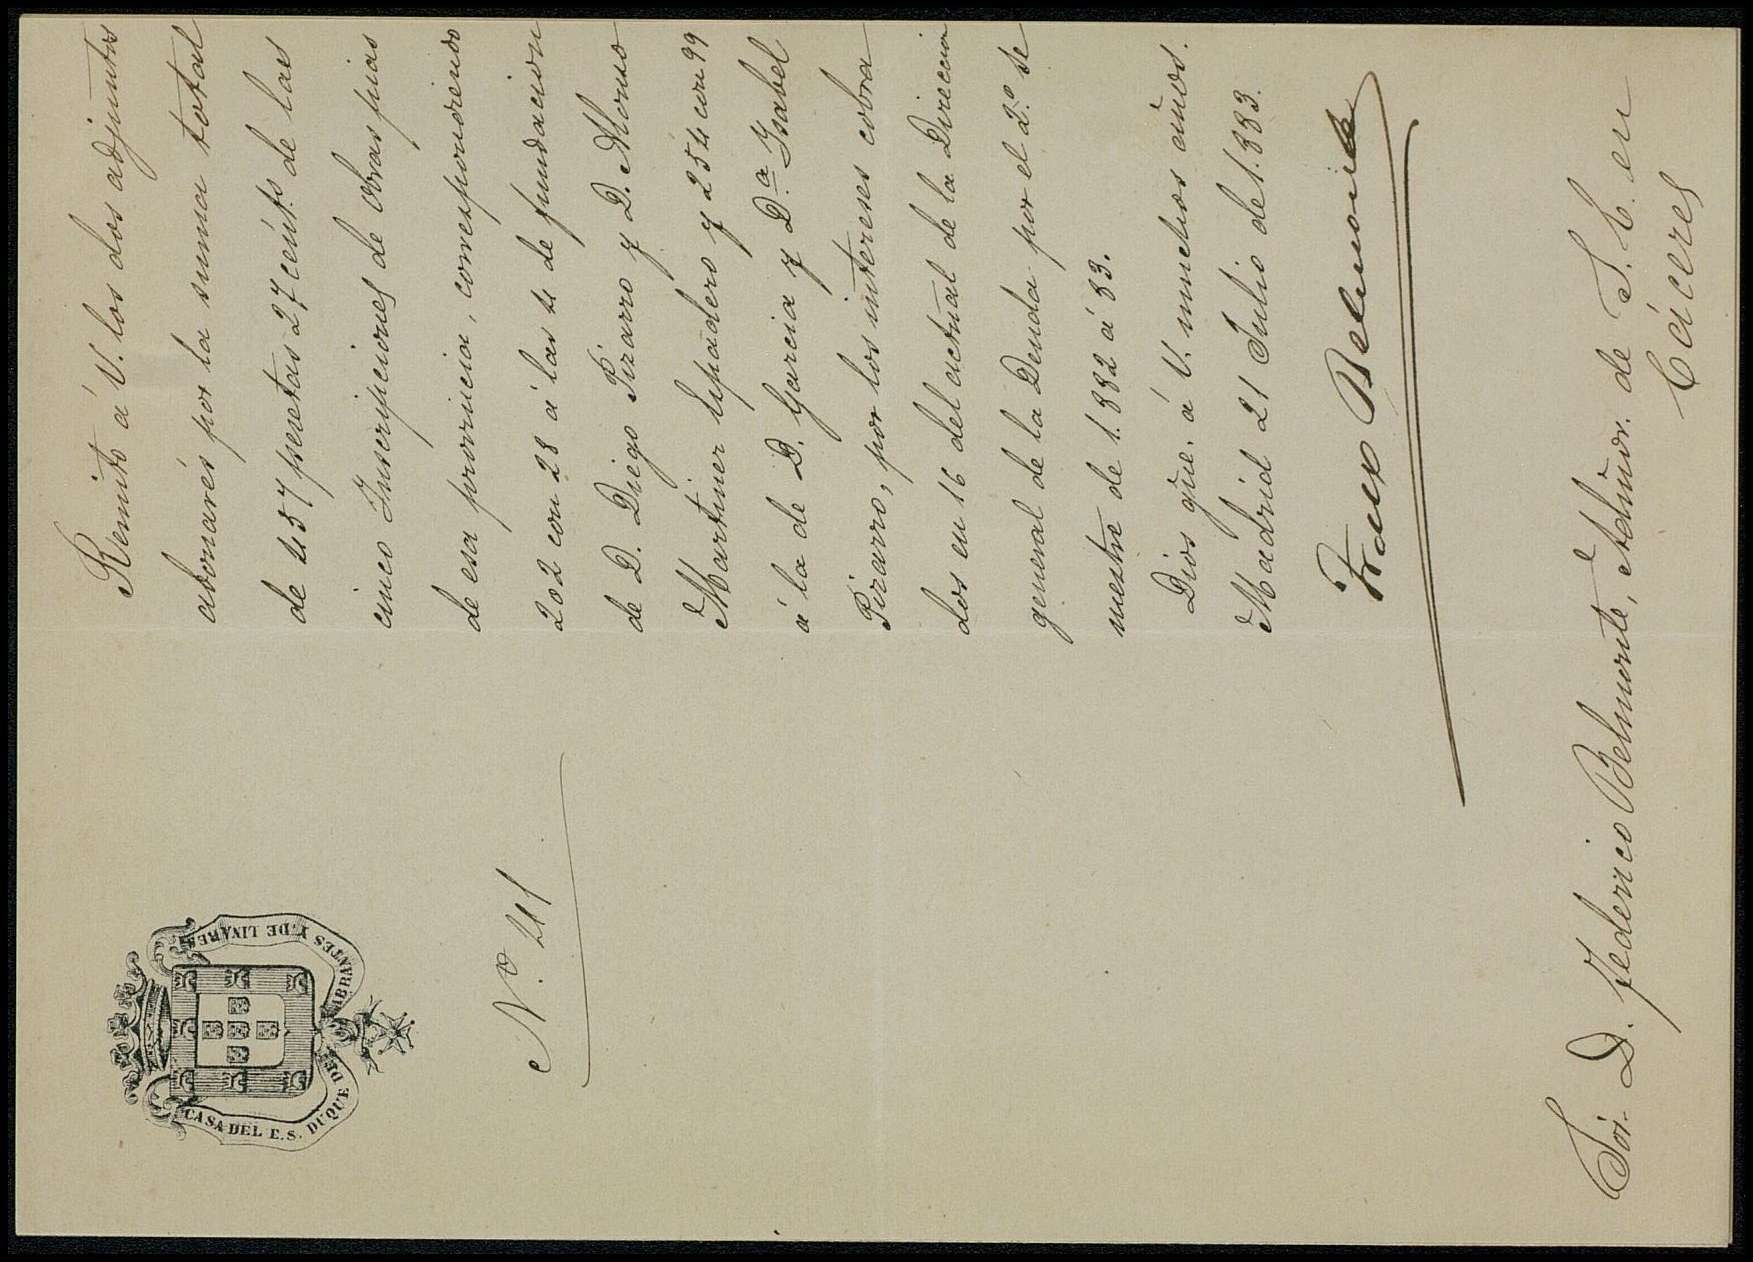 CASA DEL E.S. DUQUE DE ABRANTES Y DE LINARES
N.º 41
Remito á V. los dos adjuntos
abonarés por la suma total
de 457 pesetas 27 cént.s de las
cinco Inscripciones de obras pias
de esa provincia, correspondiendo
202 con 28 á las 4 de fundacion
de D. Diego Pizarro y D. Alonso
Martinez Espadero y 254 con 99
á la de D. Garcia y D.ª Isabel
Pizarro, por los intereses cobra
dos en 16 del actual de la Direccion
general de la Deuda por el 2.º se
mestre de 1.882 á 83.
Dios gũe. á V. muchos años.
Madrid 21 Julio de 1.883.
Franco Belmonte
Sór. D. Federico Belmonte, Admor. de S. E. en
Cáceres